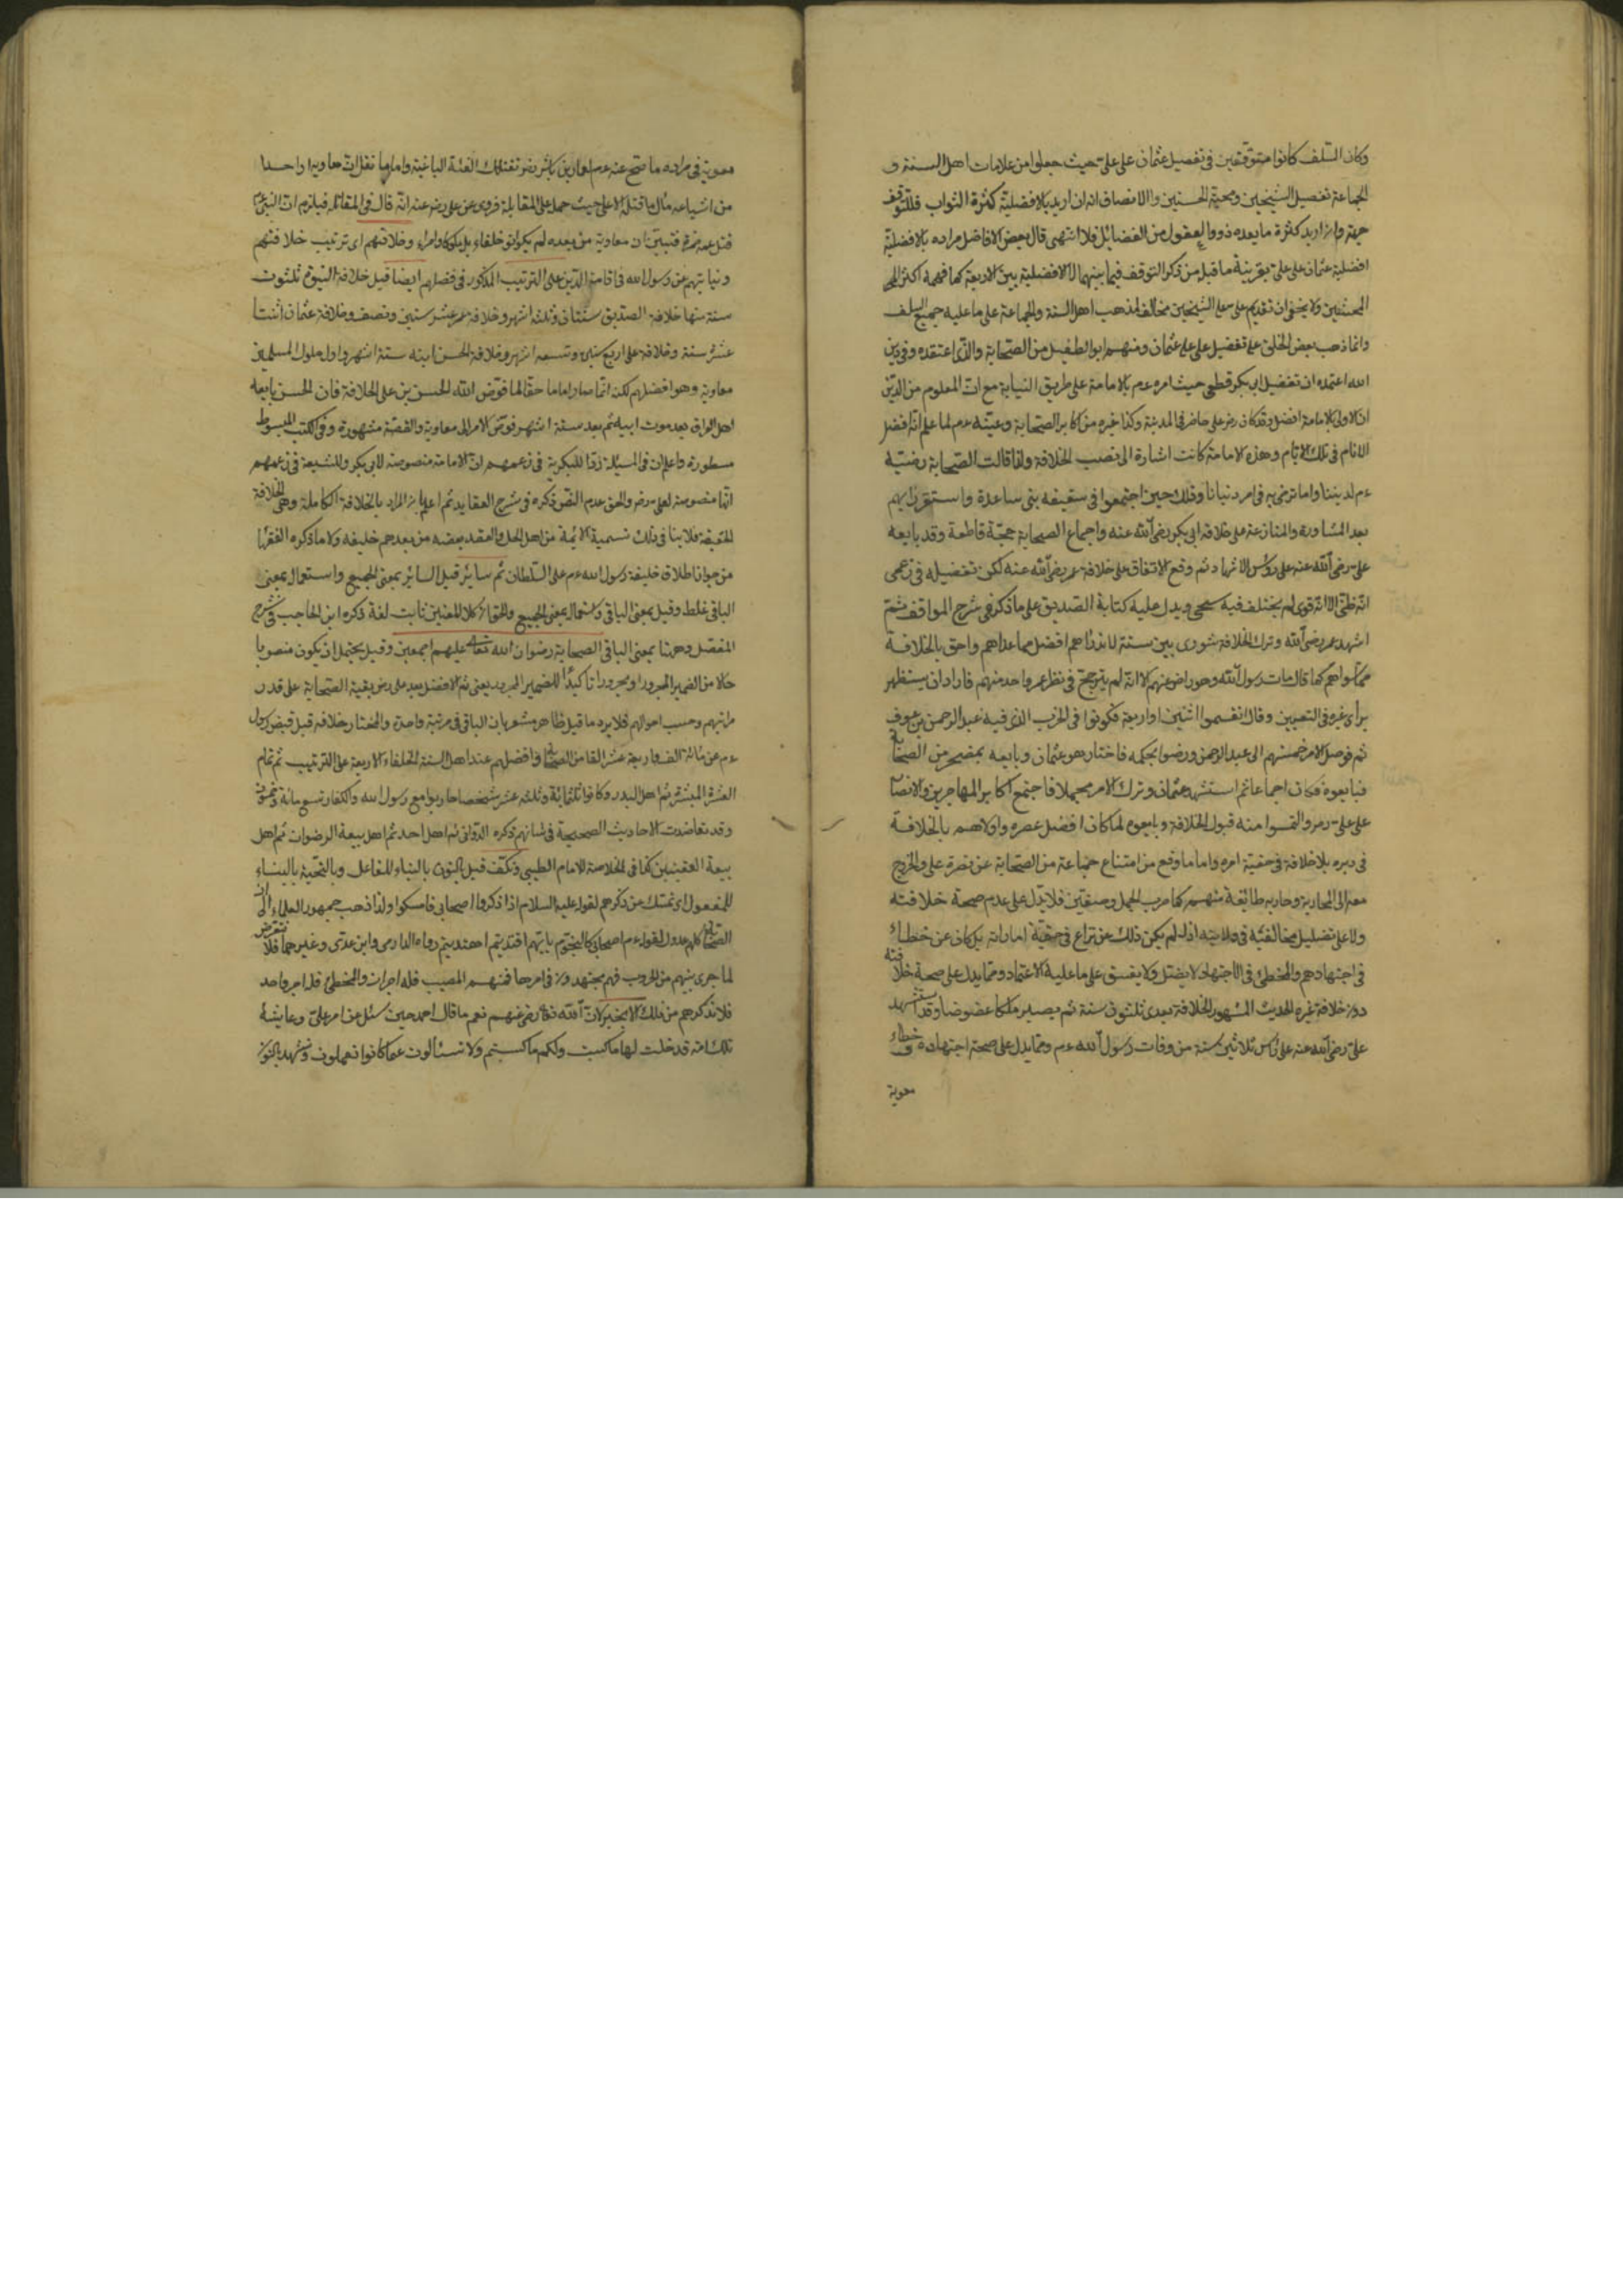 وكان السلف كانوا متوقفين في تفضيل عثمان على علي حيث جعلوا من علامات اهل السنة و
الجماعة تفضيل الشيخين ومحبة الختنين والانصاف انه ان اريد بالافضلية كثرة الثواب فللتوقف
جهة وان اريد كثرة ما يعده ذووا العقول من الفضائل فلا انتهى قال بعض الافاضل مراده بالافضلية
افضلية عثمان على علي بقرينة ما قبله من ذكر التوقف فيما بينهما لا الافضلية بين الاربعة كما فهمه اكثر
المحشين ولا يخفى ان تقديم علي على الشيخين مخالف لمذهب اهل السنة والجماعة على ما عليه جميع السلف
وانما ذهب بعض الخلف على تفضيل علي على عثمان ومنهم ابو الطفيل من الصحابة والذي اعتقده وفي دين
الله اعتمده ان تفضيل ابي بكر قطعي حيث امره عم بالامامة على طريق النيابة مع ان المعلوم من الدين
ان الاولى بالامامة افضل وقد كان رض علي حاضر في المدينة وكذا غيره من اكابر الصحابة وعينه عم لما علم انه افضل
الانام في تلك الايام وهذه الامامة كانت اشارة الى نصب الخلافة ولذا قالت الصحابة رضيه
عم لديننا واما نرضى به في امر دنيانا وذلك حين اجتمعوا في سقيفه بني ساعدة واستقر رايهم
بعد المشاورة والمنازعة على خلافة ابي بكر رضي الله عنه واجماع الصحابة حجة قاطعة وقد بايعه
علي رضي الله عنه على رؤس الاشهاد ثم وقع الاتفاق على خلافة عمر رضي الله عنه لكن تفضيله في زعمي
انه ظني الا انه قوي لم يختلف فيه سني ويدل عليه كتابة الصديق على ما ذكر في شرح المواقف ثم
اشهد عمر رضي الله وترك الخلافة شورى بين ستة لما انه راهم افضل مما عداهم واحق بالخلافة
ممن سواهم كما قال مات رسول الله وهو راض عنهم الا انه لم يترجح في نظر عمر واحد منهم فاراد ان يستظهر
براي غيره في التعيين وقال انقسموا اثنين او اربعة فكونوا في الحزب الذي فيه عبد الرحمن بن عوف
ثم فوض الامر خمستهم الى عبد الرحمن ورضوا بحكمه فاختار هو عثمان وبايعه بمحضر من الصحابة
فبايعوه فكان اجماعا ثم استشهد عثمان وترك الامر مهملا فاجتمع اكابر المهاجرين والانصار
على علي رض والتمسوا منه قبول الخلافة وبايعوه لما كان افضل عصره واولاهم بالخلافة
في دهره بلا خلافة في حقية امره واما ما وقع من امتناع جماعة من الصحابة عن نصرة علي والخروج
معه الى المحاربة وحاربه طائفة منهم كما حرب الجمل وصفين فلا يدل على عدم صحة خلافته
ولا على تضليل مخالفيه في ولايته اذ لم يكن ذلك عن نزاع في حقية امارته بل كان عن خطاء
في اجتهادهم والمخطئ في الاجتهاد لا يضلل ولا يفسق على ما عليه الاعتماد ومما يدل على صحة خلافته
دون خلافة غيره الحديث المشهور الخلافة بعدي ثلثون سنة ثم يصير ملكا عضوضا وقد استشهد
علي رضي الله عنه على رأس ثلاثين سنة من وفات رسول الله عم ومما يدل على صحة اجتهاده وخطاء
معوية
معوية في مراده ما صح عنه عم لعمار بن ياسر رض تقتلك الفئة الباغية واما ما نقل ان معاوية او احدا
من اشياعه قال ما قتله الا علي حيث حمل على المقابلة فروي عن علي رض عنه انه قال في المقاتله فيلزم ان النبي عم
قتل عمه حمزة فتبين ان معاوية من بعده لم يكونوا خلفاء بل ملوكا وامراء وخلافتهم اى ترتيب خلافتهم
ونيابتهم عن رسول الله في اقامة الدين على الترتيب المذكور في فضلهم ايضا قيل خلافة النبوة ثلثون
سنة منها خلافة الصديق سنتان وثلثه اشهر وخلافة عمر عشر سنين ونصف وخلافة عثمان اثنتا
عشرة سنة وخلافة علي اربع سنين وتسعه اشهر وخلافة الحسن ابنه ستة اشهر واول ملوك المسلمين
معاوية وهو افضلهم لكنه انما صار اماما حقا لما فوض الله الحسن بن علي الخلافة فان الحسن بايعه
اهل العراق بعد موت ابيه ثم بعد ستة اشهر فوض الامر الى معاوية والقصة مشهورة وفي الكتب المبسوط
مسطورة واعلم ان في المسئلة ردا للبكرية في زعمهم ان الامامة منصوصة لابي بكر وللشيعة في زعمهم
انها منصوصة لعلي رض والحق عدم النص ذكره في شرح العقايد ثم اعلم ان المراد بالخلافة الكاملة وهي الخلافة
الحقيقة فلا ينافي ذلك تسمية الائمة من اهل الحل والعقد بعضه من بعدهم خليفه ولا ما ذكره الفقهاء
من جواز اطلاق خليفة رسول الله عم على السلطان ثم سائر قيل السائر بمعنى الجميع واستعمال بمعنى
الباقي غلط وقيل بمعنى الباقي واستعمال بمعنى الجميع والحق ان كلا المعنيين ثابت لغة ذكره ابن الحاجب في شرح
المفصل وههنا بمعنى الباقي الصحابة رضوان الله تعالى عليهم اجمعين وقيل يحتمل ان يكون منصوبا
حالا من الضمير المجرور او مجرورا تاكيدا للضمير المجرور يعني ثم الافضل بعد علي رض بقية الصحابة على قدر
مراتبهم وحسب احوالهم فلا يرد ما قيل ظاهره مشعر بان الباقي في مرتبة واحدة والمختار خلافه قيل قبض رسول
عم عن مائة الف واربعة عشر الفا من الصحابة وافضلهم عند اهل السنة الخلفاء الاربعة على الترتيب ثم تمام
العشرة المبشرة ثم اهل البدر وكانوا ثلثمائة وثلثه عشر شخصا حاربوا مع رسول الله والكفار تسعمائة وخمسون
وقد تعاضدت الاحاديث الصحيحة في شانهم ذكره الدواني ثم اهل احد ثم اهل بيعة الرضوان ثم اهل
بيعة العقبتين كما في الخلاصة للامام الطيبي ونكف قيل بالنون بالبناء للفاعل وبالتحتية بالبناء
للمفعول اى نمسك عن ذكرهم لقوله عليه السلام اذا ذكروا اصحابي فامسكوا ولذا ذهب جمهور العلماء الى ان
الصحابة كلهم عدول لقوله عم اصحابي كالنجوم بايهم اقتديتم اهتديتم رواه الدارمي وابن عدي وغيرهما فلا نتعرض
لما جرى بينهم من الحروب فهم مجتهدون في امرها فمنهم المصيب فله اجران والمخطئ فله اجر واحد
فلا نذكرهم من ذلك الا بخير لان الله تعالى رضي عنهم نعم ما قال احمد حين سئل عن امر علي وعايشة
تلك امة قد خلت لها ما كسبت ولكم ما كسبتم ولا تسئلون عما كانوا يعملون ونشهد بالنون